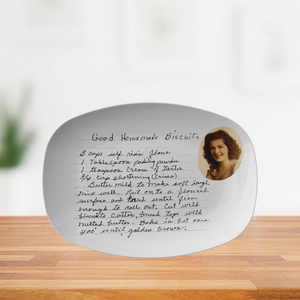 Good Homemade Biscuits
2 cups self risin flour
1 Tablespoon baking powder
1 teaspoon cream of tarter
3/4 cup shortening (crisco)
Butter milk to make soft dough
mix well. Put onto a floured
surface and knead until firm
enough to roll out. Cut with
biscuits cutter, brush tops with
melted butter. Bake in hot oven
400° until golden brown.